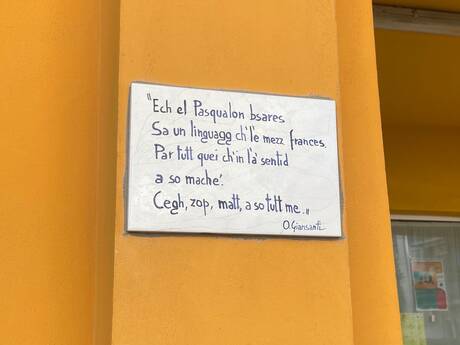 "Ech el Pasqualon bsares
Sa un linguagg ch'l'è mezz frances.
Par tutt quei ch'in l'à sentid
a so maché.
Cegh, zop, matt, a so tutt me.„
O. Giansanti